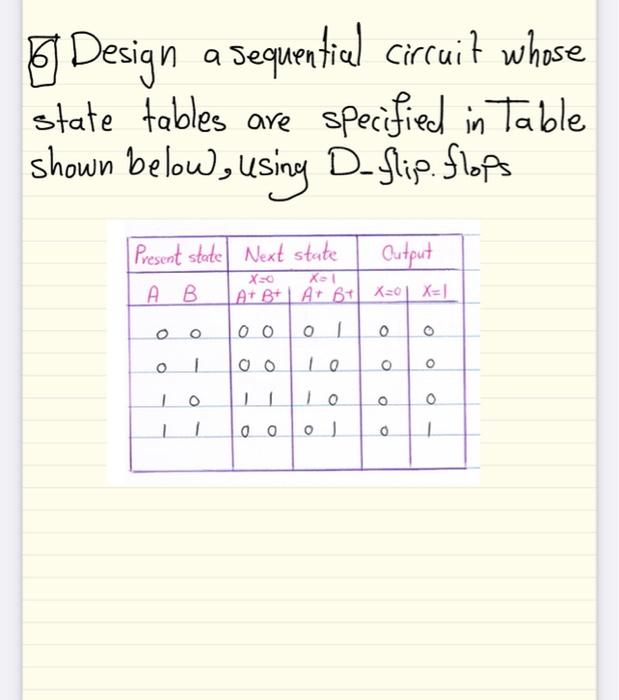 6 Design a sequential circuit whose
state tables are specified in Table
shown below, using D-flip.flops
Present state Next state Output
X=0 X=1
A B A+ B+ A+ B+ X=0 X=1
0 0 0 0 0 1 0 0
0 1 0 0 1 0 0 0
1 0 1 1 1 0 0 0
1 1 0 0 0 1 0 1